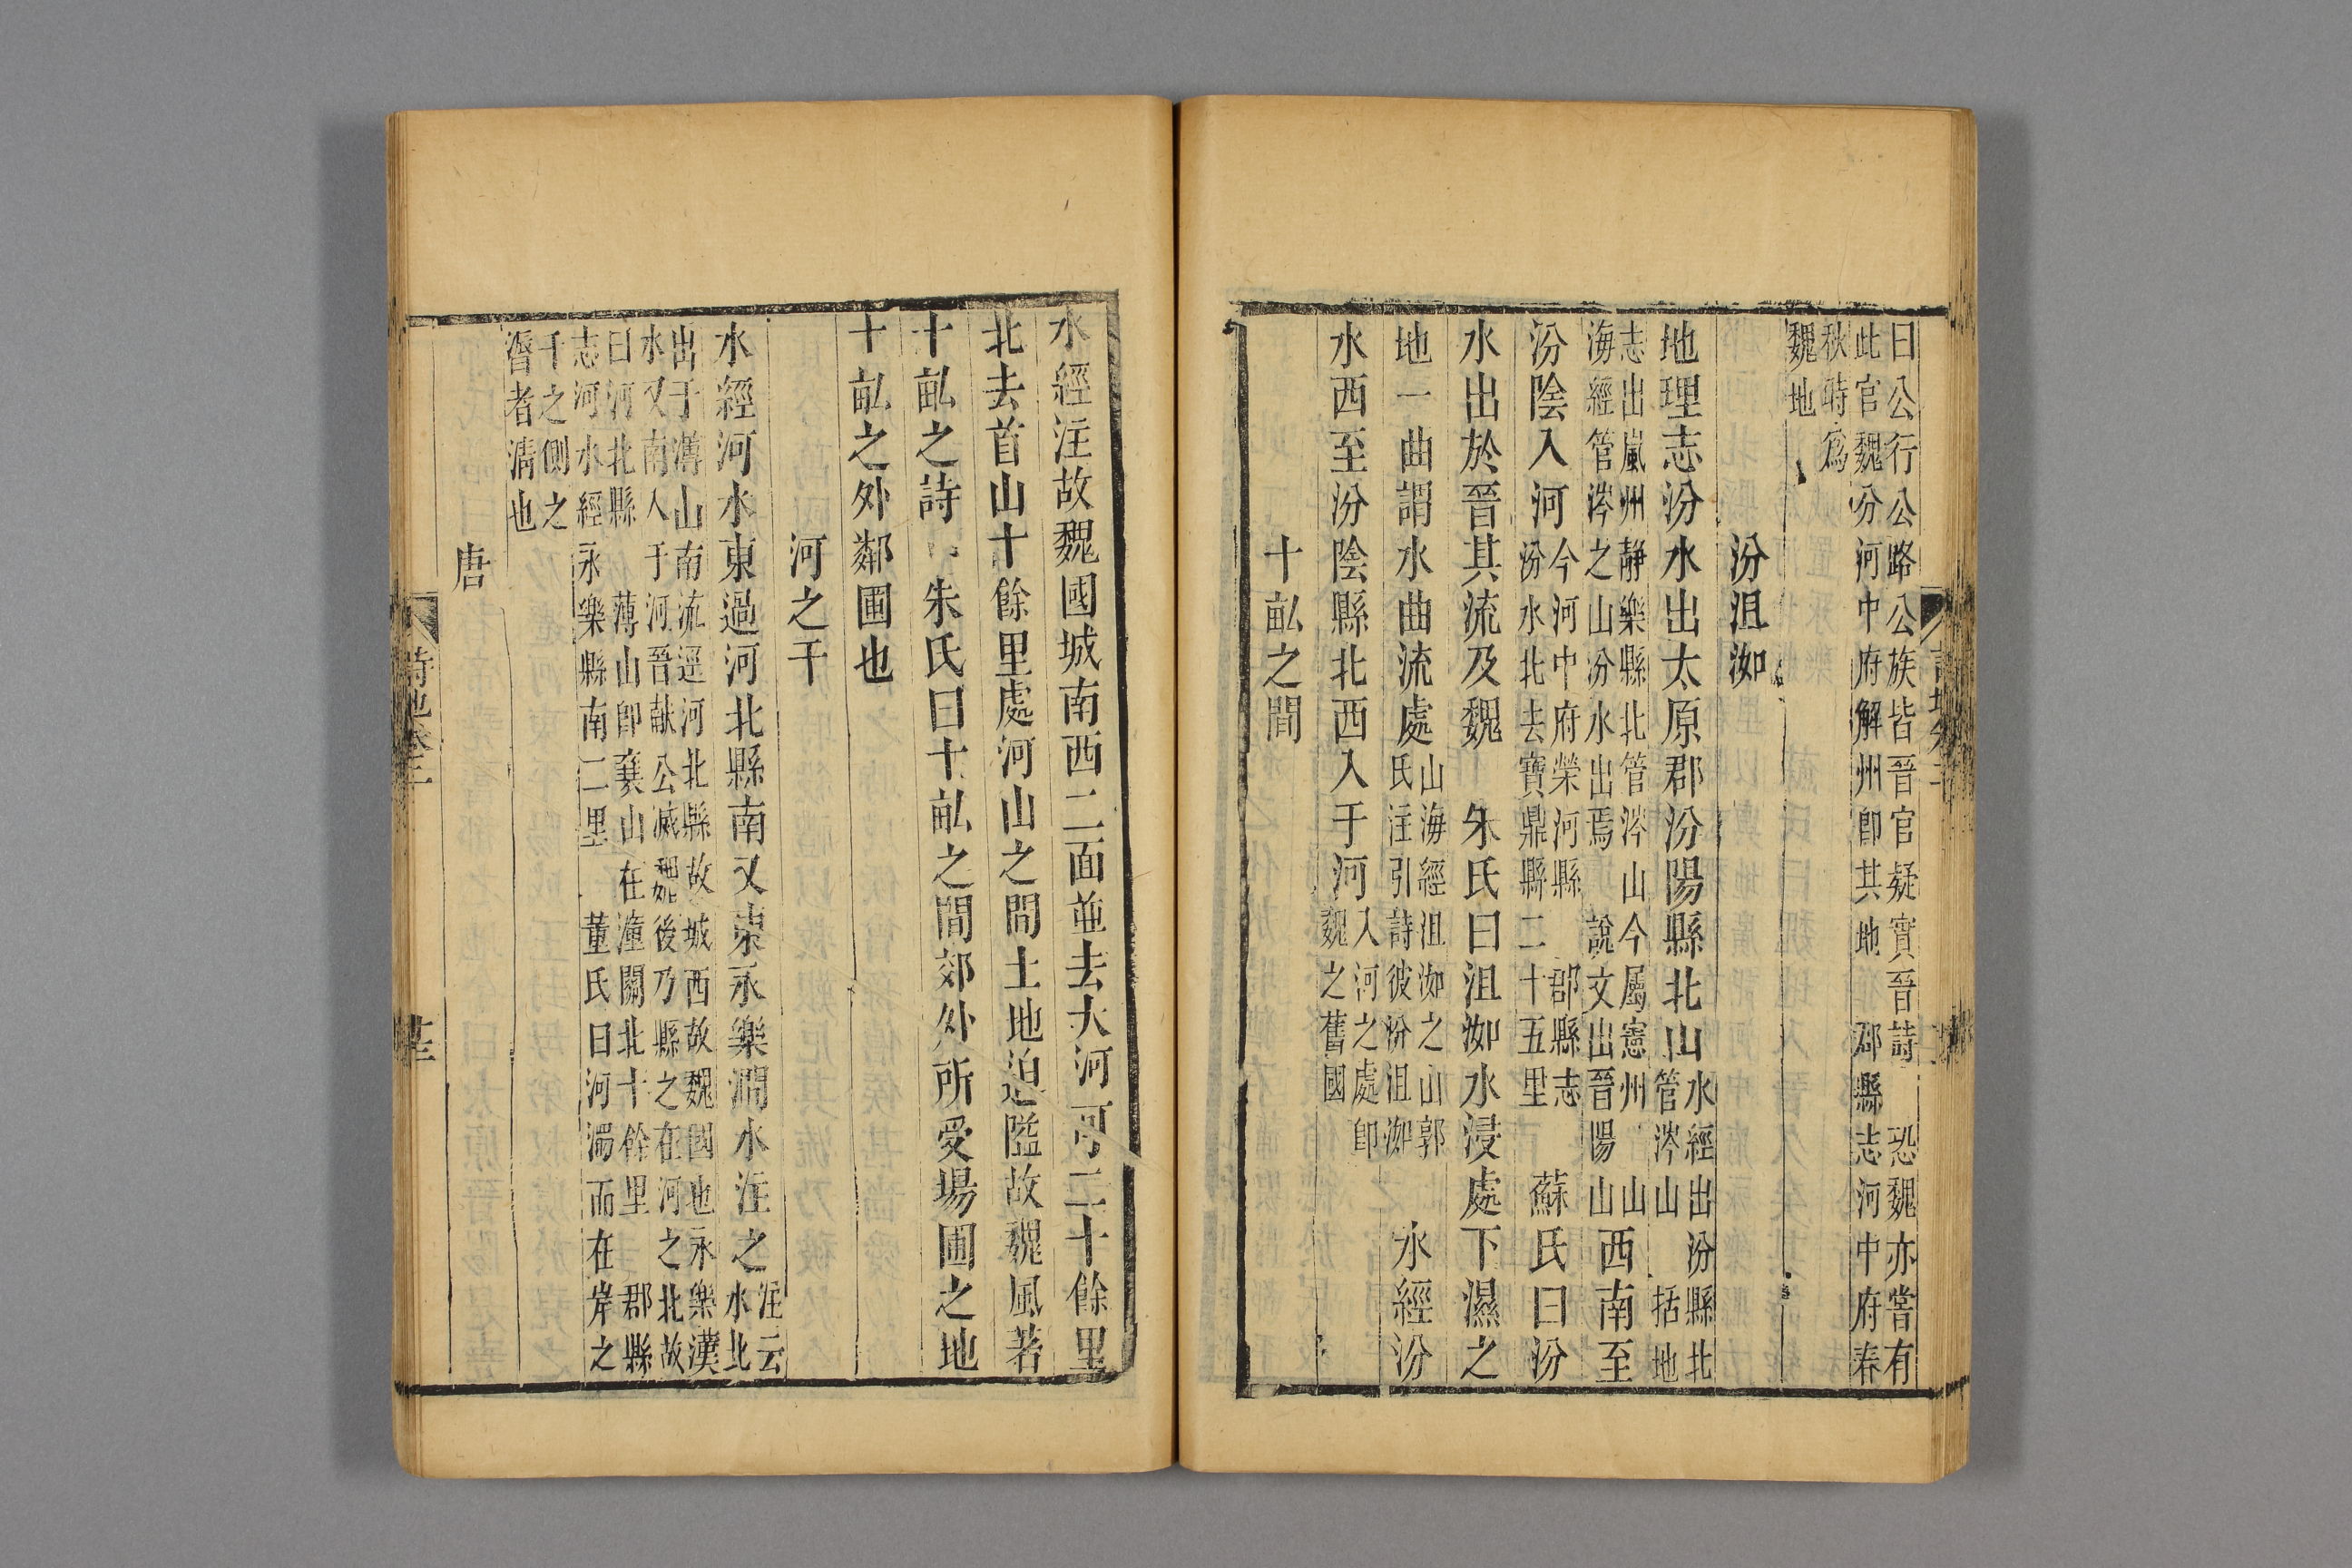 曰公行公路公族皆晉官疑實晉詩　恐魏亦嘗有
此官魏分河中府解州卽其地　郡縣志河中府春
秋時爲
魏地
汾沮洳
地理志汾水出太原郡汾陽縣北山
水經出汾縣北
管涔山　括地
志出嵐州靜樂縣北管涔山今屬憲州　山
海經管涔之山汾水出焉　說文出晉陽山
西南至
汾陰入河
今河中府榮河縣　郡縣志
汾水北去寶鼎縣二十五里
蘇氏曰汾
水出於晉其流及魏　朱氏曰沮洳水浸處下濕之
地一曲謂水曲流處
山海經沮洳之山郭
氏注引詩彼汾沮洳
水經汾
水西至汾陰縣北西入于河
入河之處卽
魏之舊國
十畝之間
水經注故魏國城南西二面並去大河可二十餘里
北去首山十餘里處河山之間土地迫隘故魏風著
十畝之詩　朱氏曰十畝之間郊外所受場圃之地
十畝之外鄰圃也
河之干
水經河水東過河北縣南又東永樂澗水注之
注云
水北
出于薄山南流逕河北縣故城西故魏國也永樂漢
水又南入于河晉獻公滅魏後乃縣之在河之北故
曰河北縣　薄山卽襄山在潼關北十餘里　郡縣
志河水經永樂縣南二里　董氏曰河濁而在岸之
干之側之
漘者淸也
唐
詩地卷二